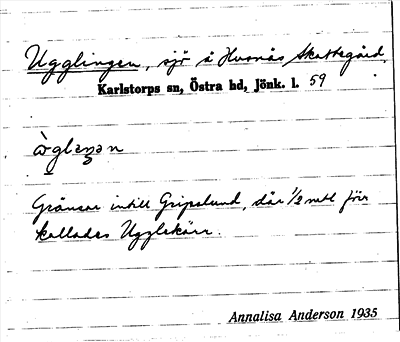 Ugglingen, sjö å Hvornås Skattegård,
Karlstorps sn, Östra hd, Jönk. l. 59
Gränsar intill Gripslund, där 1/2 mtl förr
kallades Ugglekärr.
Annalisa Anderson 1935